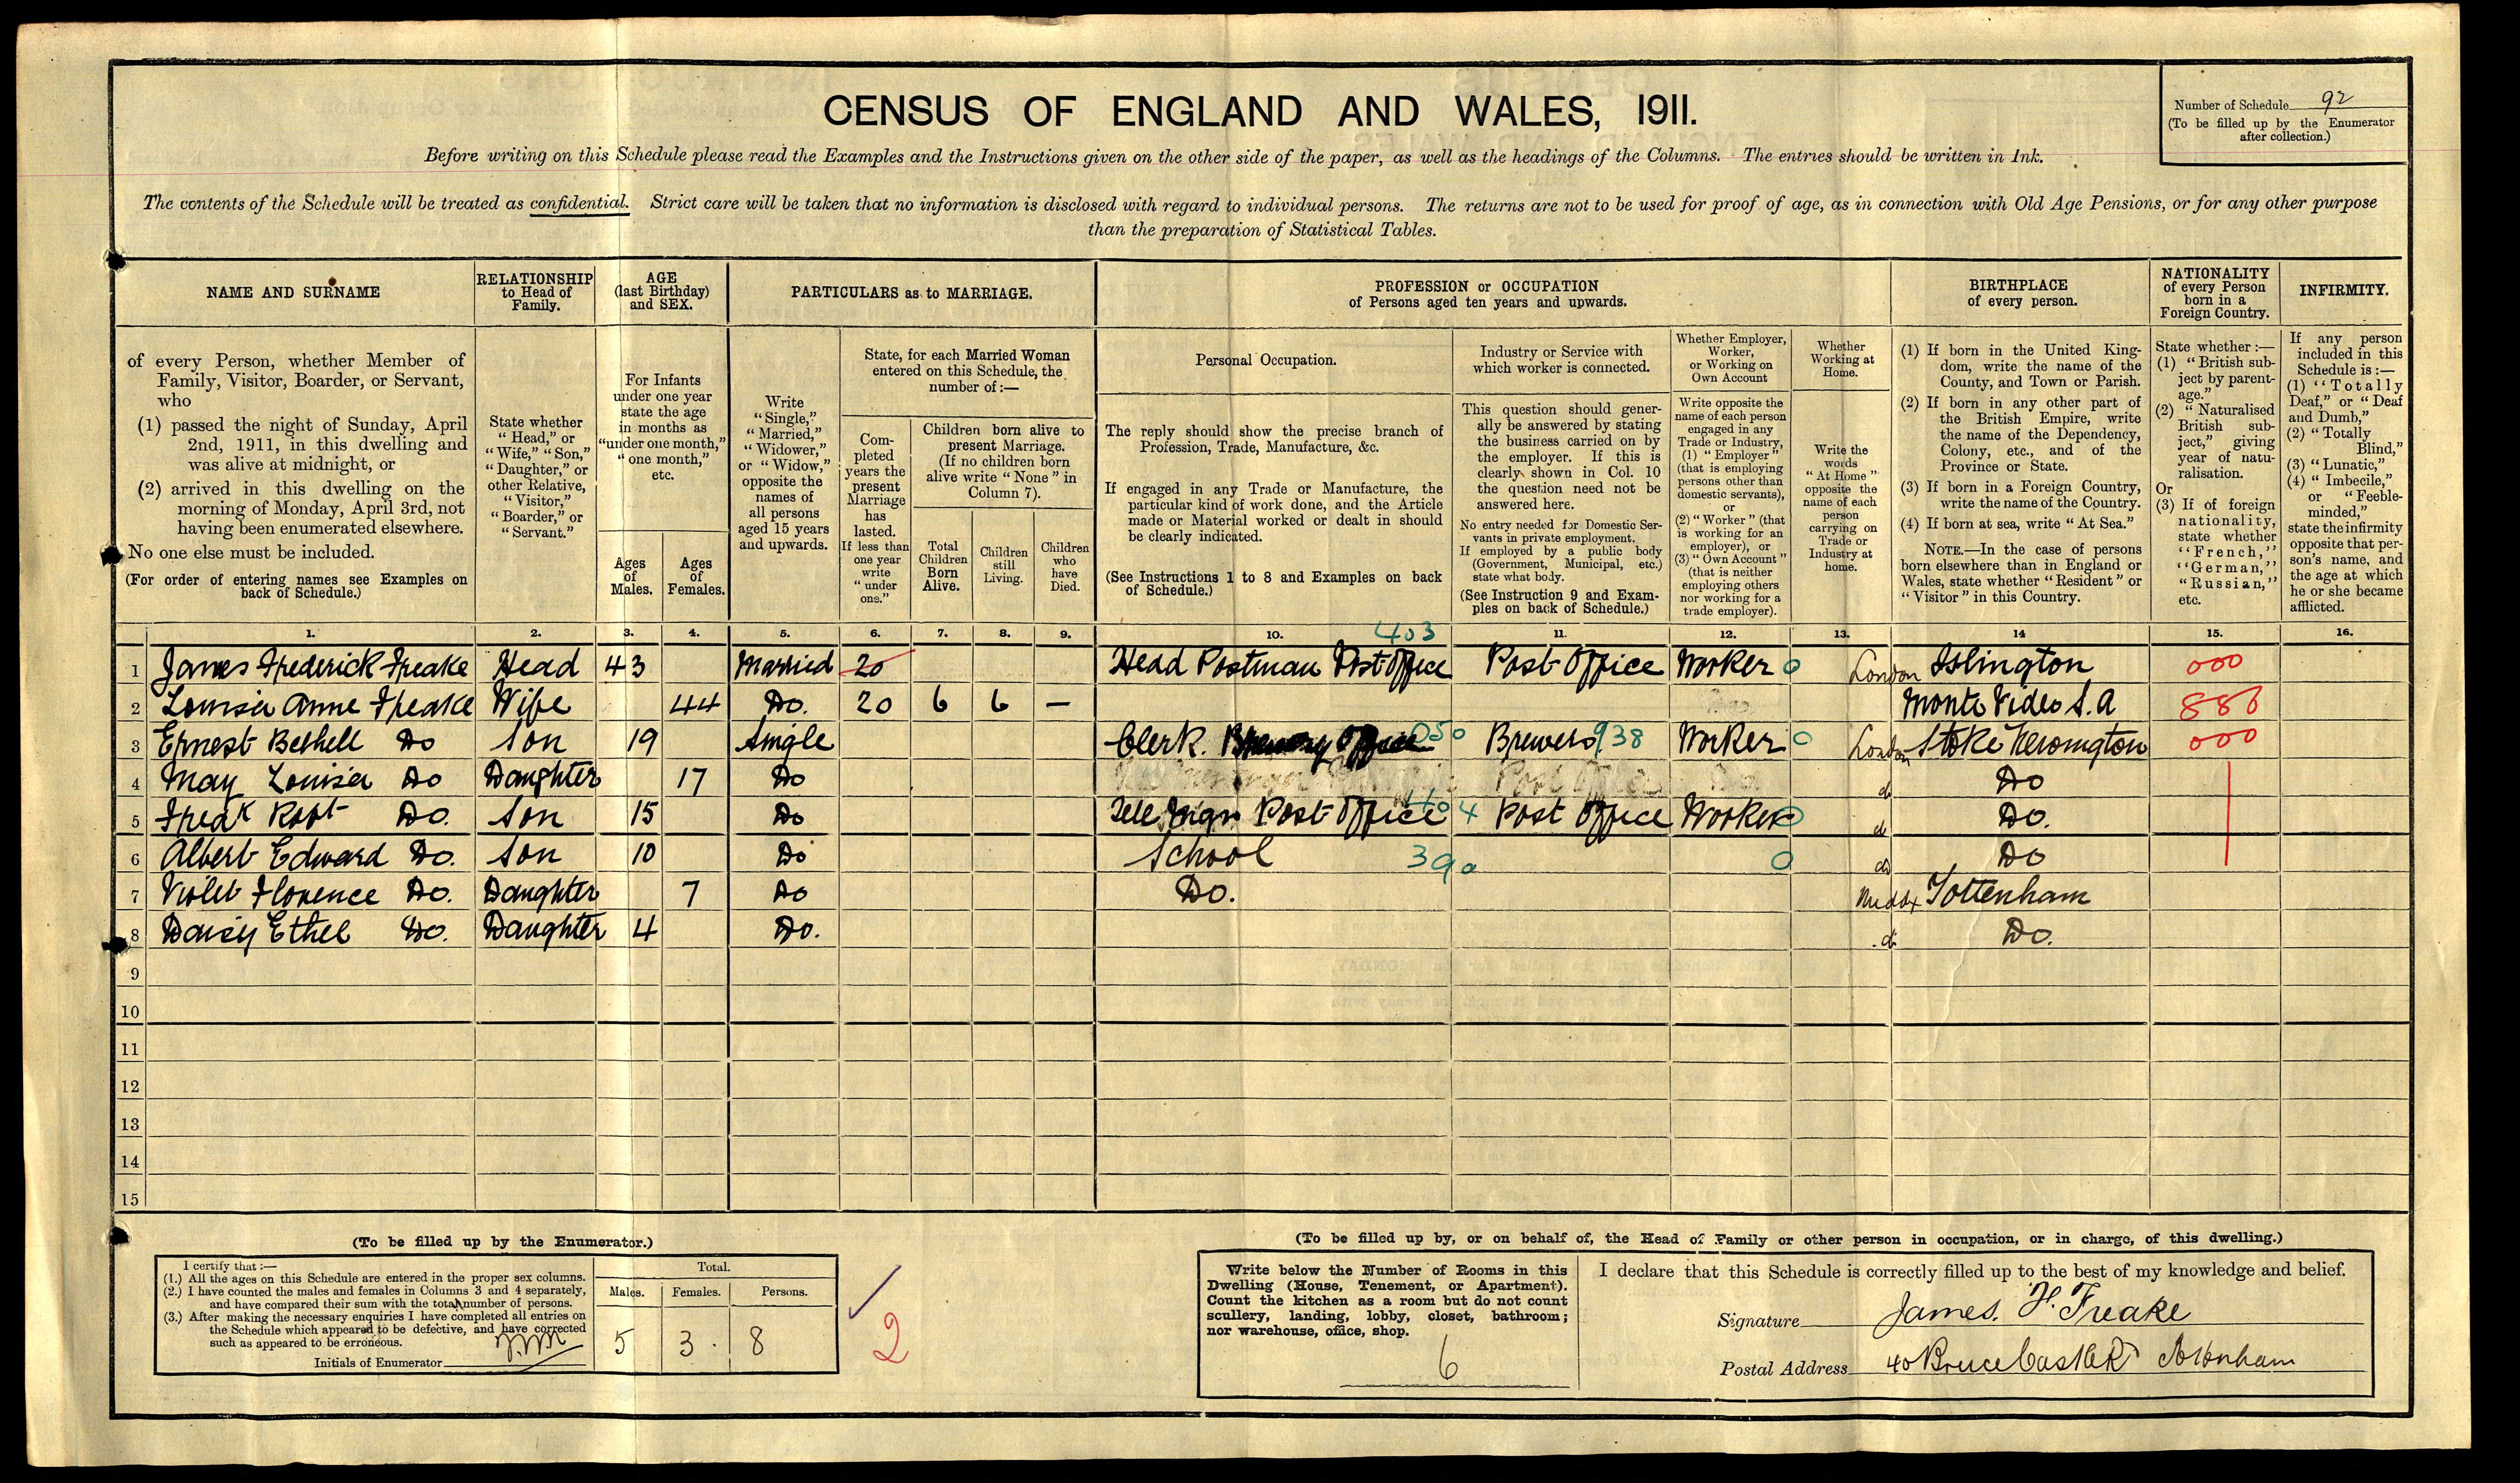 Number of Schedule 92
(To be filled up by the Enumerator
after collection.)
CENSUS OF ENGLAND AND WALES, 1911.
Before writing on this Schedule please read the Examples and the Instructions given on the other side of the paper, as well as the headings of the Columns. The entries should be written in Ink.
The contents of the Schedule will be treated as confidential. Strict care will be taken that no information is disclosed with regard to individual persons. The returns are not to be used for proof of age, as in connection with Old Age Pensions, or for any other purpose
than the preparation of Statistical Tables.
NAME AND SURNAME
of every Person, whether Member of
Family, Visitor, Boarder, or Servant,
who
(1) passed the night of Sunday, April
2nd, 1911, in this dwelling and
was alive at midnight, or
(2) arrived in this dwelling on the
morning of Monday, April 3rd, not
having been enumerated elsewhere.
No one else must be included.
(For order of entering names see Examples on
back of Schedule.)
RELATIONSHIP
to Head of
Family.
State whether
"Head," or
"Wife," "Son,"
"Daughter," or
other Relative,
"Visitor,"
"Boarder," or
"Servant."
AGE
(last Birthday)
and SEX.
For Infants
under one year
state the age
in months as
"under one month,"
"one month,"
etc.
Ages
of
Males.
Ages
of
Females.
PARTICULARS as to MARRIAGE.
Write
"Single,"
"Married,"
"Widower,"
or "Widow,"
opposite the
names of
all persons
aged 15 years
and upwards.
State, for each Married Woman
entered on this Schedule, the
number of:—
Com-
pleted
years the
present
Marriage
has
lasted.
If less than
one year
write
"under
one."
Children born alive to
present Marriage.
(If no children born
alive write "None" in
Column 7).
Total
Children
Born
Alive.
Children
still
Living.
Children
who
have
Died.
PROFESSION or OCCUPATION
of Persons aged ten years and upwards.
Personal Occupation.
The reply should show the precise branch of
Profession, Trade, Manufacture, &c.
If engaged in any Trade or Manufacture, the
particular kind of work done, and the Article
made or Material worked or dealt in should
be clearly indicated.
(See Instructions 1 to 8 and Examples on back
of Schedule.)
Industry or Service with
which worker is connected.
This question should gener-
ally be answered by stating
the business carried on by
the employer. If this is
clearly shown in Col. 10
the question need not be
answered here.
No entry needed for Domestic Ser-
vants in private employment.
If employed by a public body
(Government, Municipal, etc.)
state what body.
(See Instruction 9 and Exam-
ples on back of Schedule.)
Whether Employer,
Worker,
or Working on
Own Account
Write opposite the
name of each person
engaged in any
Trade or Industry,
(1) "Employer"
(that is employing
persons other than
domestic servants),
or
(2) "Worker" (that
is working for an
employer), or
(3) "Own Account"
(that is neither
employing others
nor working for a
trade employer).
Whether
Working at
Home.
Write the
words
"At Home"
opposite the
name of each
person
carrying on
Trade or
Industry at
home.
BIRTHPLACE
of every person.
(1) If born in the United King-
dom, write the name of the
County, and Town or Parish.
(2) If born in any other part of
the British Empire, write
the name of the Dependency,
Colony, etc., and of the
Province or State.
(3) If born in a Foreign Country,
write the name of the Country.
(4) If born at sea, write "At Sea."
NOTE.—In the case of persons
born elsewhere than in England or
Wales, state whether "Resident" or
"Visitor" in this Country.
NATIONALITY
of every Person
born in a
Foreign Country.
State whether :—
(1) "British sub-
ject by parent-
age."
(2) "Naturalised
British sub-
ject," giving
year of natu-
ralisation.
Or
(3) If of foreign
nationality,
state whether
"French,"
"German,"
"Russian,"
etc.
INFIRMITY.
If any person
included in this
Schedule is :—
(1) "Totally
Deaf," or "Deaf
and Dumb,"
(2) "Totally
Blind,"
(3) "Lunatic,"
(4) "Imbecile,"
or "Feeble-
minded,"
state the infirmity
opposite that per-
son's name, and
the age at which
he or she became
afflicted.
1. 2. 3. 4. 5. 6. 7. 8. 9. 10. 403 11. 12. 13. 14 15. 16.
1 James Frederick Freake Head 43 Married 20 Head Postman Post Office Post Office Worker 0 London Islington 000
2 Louisa Anne Freake Wife 44 Do. 20 6 6 — Monte Video S.A
3 Ernest Bethell Do Son 19 Single Clerk. 050 Brewers 938 Worker 0 London Stoke Newington 000
4 May Louisa Do Daughter 17 Do Post Office Do. do Do
5 Robt Do. Son 15 Do Tele Post Office 404 Post Office Worker 0 do Do.
6 Albert Edward Do. Son 10 Do School 390 0 do Do
7 Violet Florence Do. Daughter 7 Do Do. Middx Tottenham
8 Daisy Ethel Do. Daughter 4 Do. do Do.
9
10
11
12
13
14
15
(To be filled up by the Enumerator.)
I certify that :—
(1.) All the ages on this Schedule are entered in the proper sex columns.
(2.) I have counted the males and females in Columns 3 and 4 separately,
and have compared their sum with the total number of persons.
(3.) After making the necessary enquiries I have completed all entries on
the Schedule which appeared to be defective, and have corrected
such as appeared to be erroneous.
Initials of Enumerator
Total.
Males. Females. Persons.
5 3. 8
2
(To be filled up by, or on behalf of, the Head of Family or other person in occupation, or in charge, of this dwelling.)
Write below the Number of Rooms in this
Dwelling (House, Tenement, or Apartment).
Count the kitchen as a room but do not count
scullery, landing, lobby, closet, bathroom;
nor warehouse, office, shop.
6
I declare that this Schedule is correctly filled up to the best of my knowledge and belief.
Signature James. F. Freake
Postal Address 40 Bruce Castle Rd Tottenham